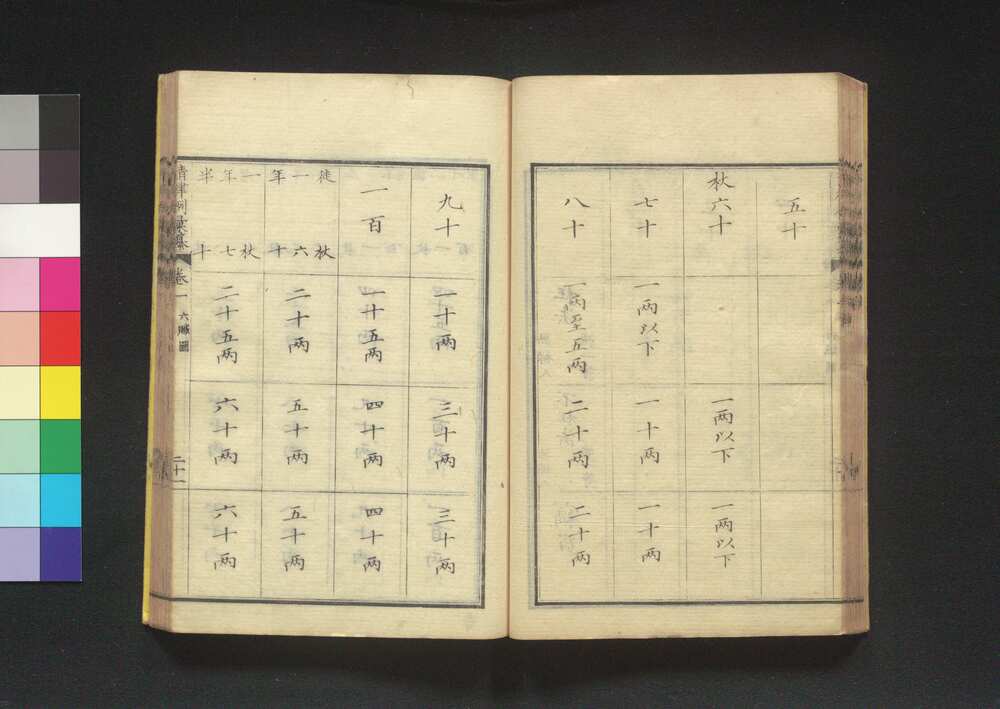 五十
杖六十
一两以下
一两以下
七十
一两以下
一十两
一十两
八十
一两至五两
二十两
二十两
九十
一十两
三十两
三十两
一百
一十五两
四十两
四十两
徒一年
杖六十
二十两
五十两
五十两
一年半
杖七十
二十五两
六十两
六十两
清律例彙纂
卷一
六贓圖
二十一